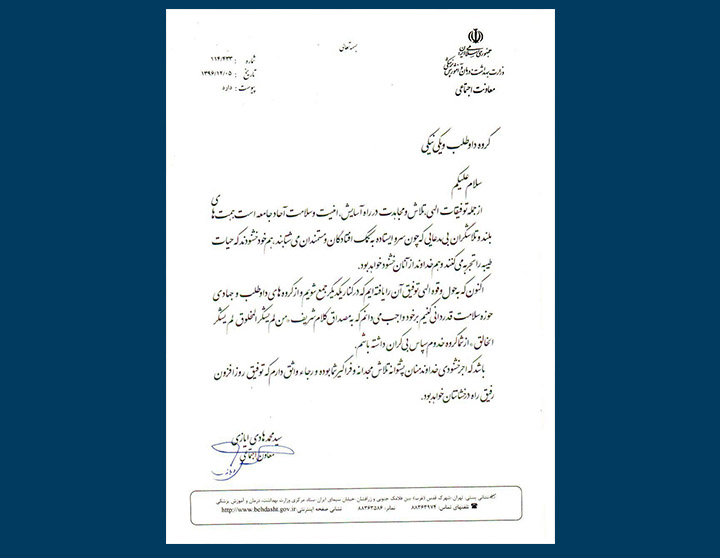 بسمه تعالی
جمهوری اسلامی ایران
وزارت بهداشت، درمان و آموزش پزشکی
معاونت اجتماعی
شماره : ۱۱۴/۴۳۳
تاریخ : ۱۳۹۶/۱۲/۰۵
پیوست : دارد
گروه داوطلب ویکی نیکی
سلام علیکم
از جمله توفیقات الهی، تلاش و مجاهدت در راه آسایش، امنیت و سلامت آحاد جامعه است. همت های
بلند و تلاشگران بی مدعایی که چون سرو ایستاده به کمک افتادگان و مستمندان می شتابند، هم خود خشنودند که حیات
طیبه را تجربه می کنند و هم خداوند از آنان خشنود خواهد بود.
اکنون که به حول و قوه الهی توفیق آن را یافته ایم که در کنار یکدیگر جمع شویم و از گروه های داوطلب و جهادی
حوزه سلامت قدردانی کنیم بر خود واجب می دانم که به مصداق کلام شریف، «من لم یشکر المخلوق لم یشکر
الخالق»، از شما گروه خدوم سپاس بی کران داشته باشم.
باشد که اجر خشنودی خداوند منان پشتوانه تلاش مجدانه و فراگیر شما بوده و رجاء واثق دارم که توفیق روز افزون
رفیق راه درخشانتان خواهد بود.
سید محمد هادی ایازی
معاون اجتماعی
نشانی پستی: تهران، شهرک قدس (غرب)، بین فلامک جنوبی و زرافشان، خیابان سیمای ایران، ستاد مرکزی وزارت بهداشت، درمان و آموزش پزشکی
تلفنهای تماس: ۸۸۳۶۳۹۷۴ نمابر: ۸۸۳۶۳۵۸۶ نشانی صفحه اینترنتی http://www.behdasht.gov.ir